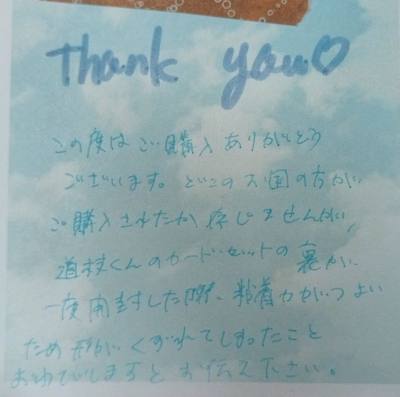 Thank you♡
この度はご購入ありがとう
ございます。どこのお国の方が
ご購入されたか存じませんが、
道枝くんのカードセットの裏が、
一度開封した際、粘着力がつよい
ため形がくずれてしまったこと
おわびしますとお伝え下さい。